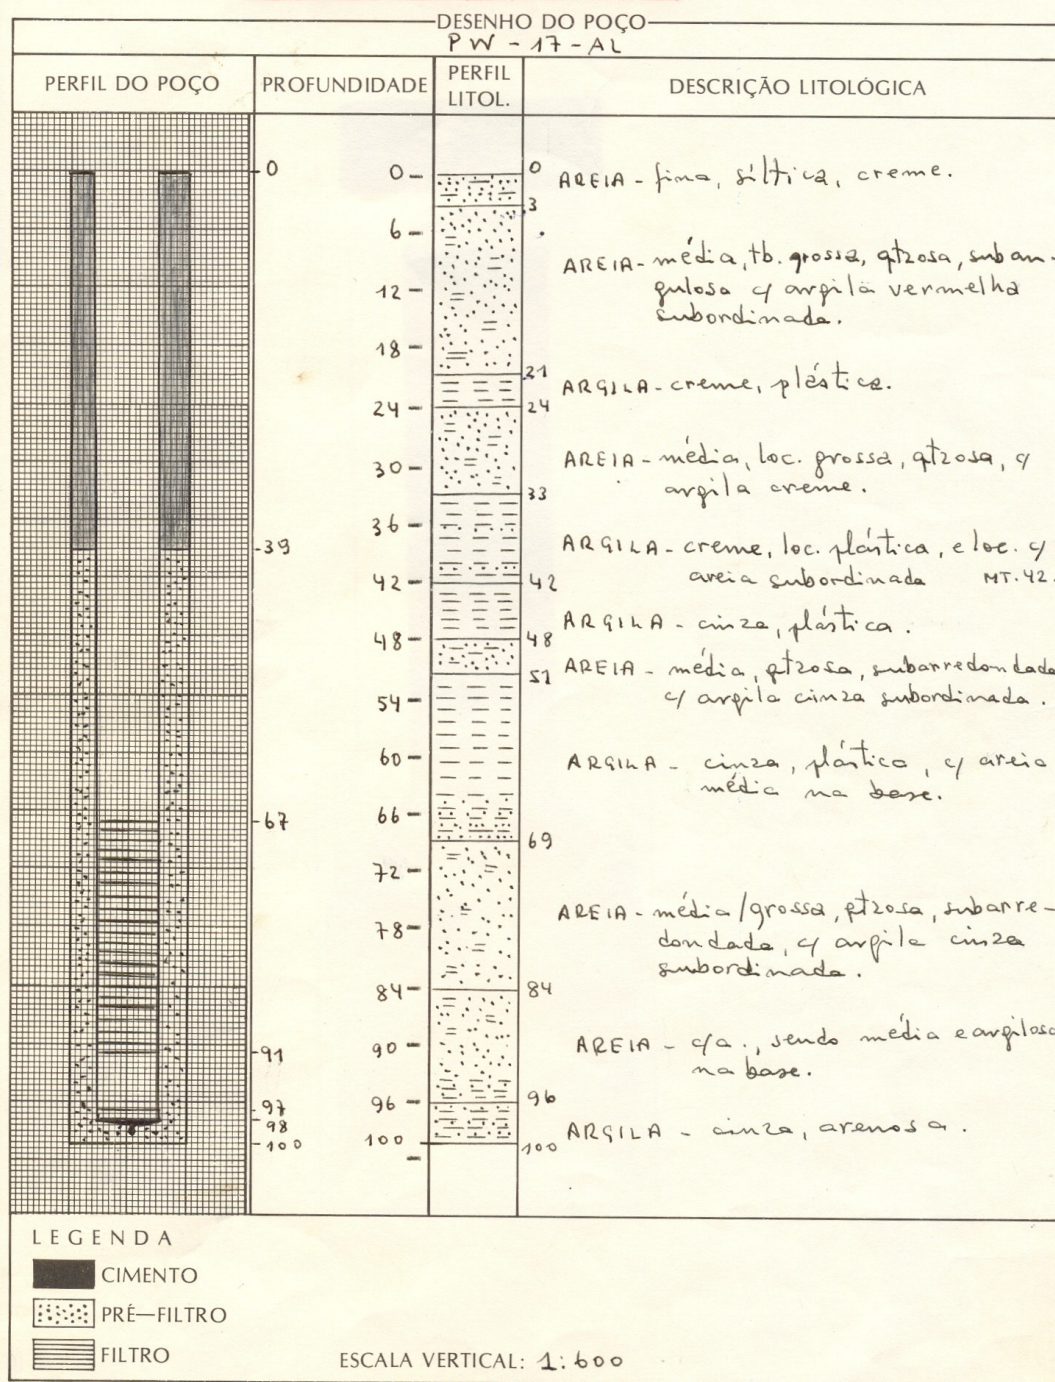 DESENHO DO POÇO
PW-17-AL
PERFIL DO POÇO
PROFUNDIDADE
PERFIL
LITOL.
DESCRIÇÃO LITOLÓGICA
0
39
67
91
97
98
100
0
6
12
18
24
30
36
42
48
54
60
66
72
78
84
90
96
100
0
3
21
24
33
42
48
51
69
84
96
100
AREIA - fina, síltica, creme.
AREIA - média, tb. grossa, qtzosa, suban-
gulosa c/ argila vermelha
subordinada.
ARGILA - creme, plástica.
AREIA - média, loc. grossa, qtzosa, c/
argila creme.
ARGILA - creme, loc. plástica, e loc. c/
areia subordinada MT.42.
ARGILA - cinza, plástica.
AREIA - média, qtzosa, subarredondada
c/ argila cinza subordinada.
ARGILA - cinza, plástica, c/ areia
média na base.
AREIA - média/grossa, qtzosa, subarre-
dondada, c/ argila cinza
subordinada.
AREIA - c/a., sendo média e argilosa
na base.
ARGILA - cinza, arenosa.
LEGENDA
CIMENTO
PRÉ-FILTRO
FILTRO
ESCALA VERTICAL: 1:600